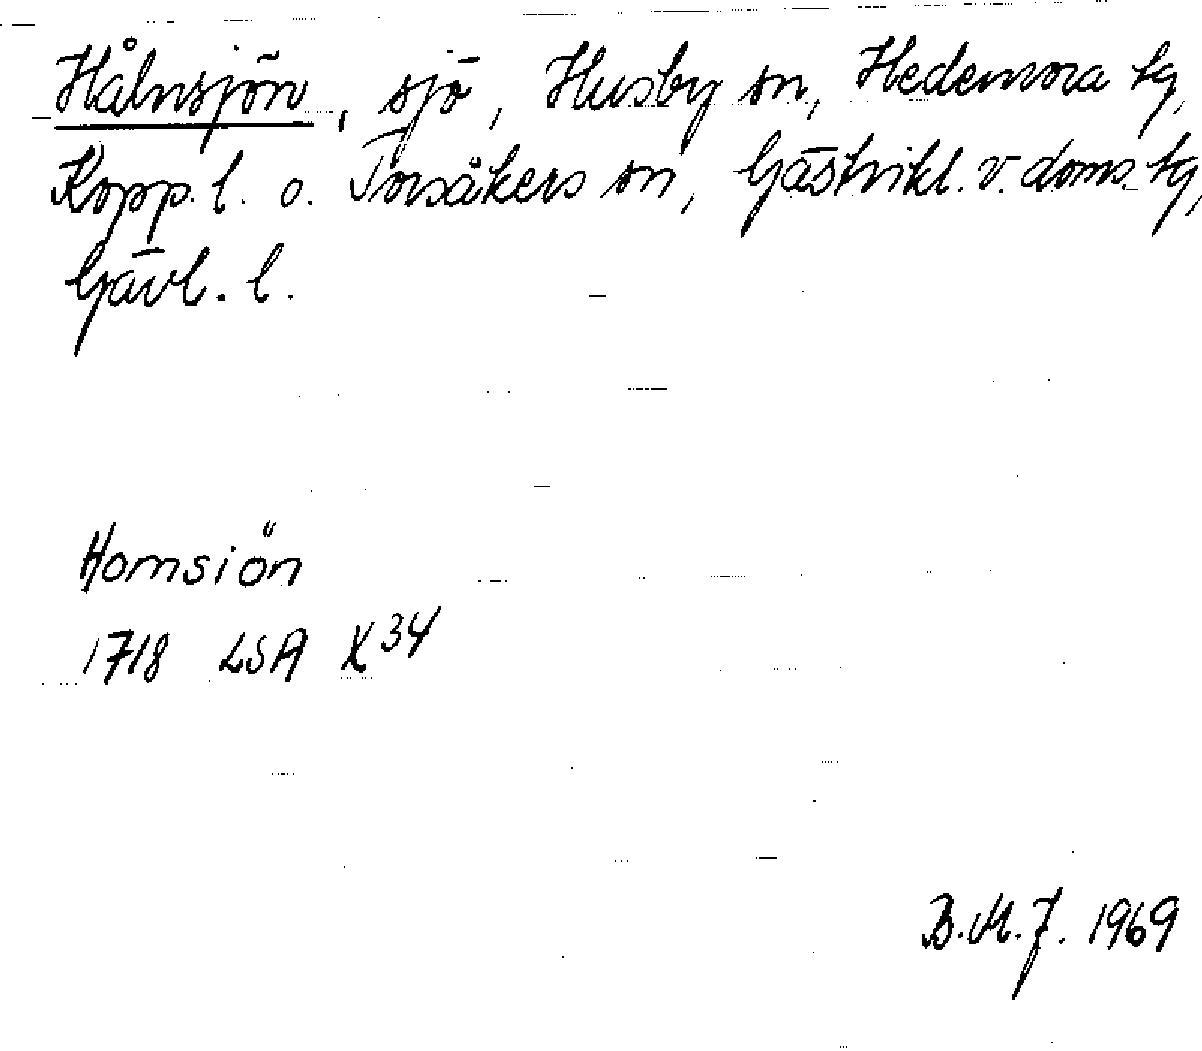 Hålnsjön, sjö, Husby sn, Hedemora tg,
Kopp. l. o. Torsåkers sn, Gästrikl. v. doms. tg,
Gävl. l.
Homsiön
1718 LSA X34
B.M.J. 1969